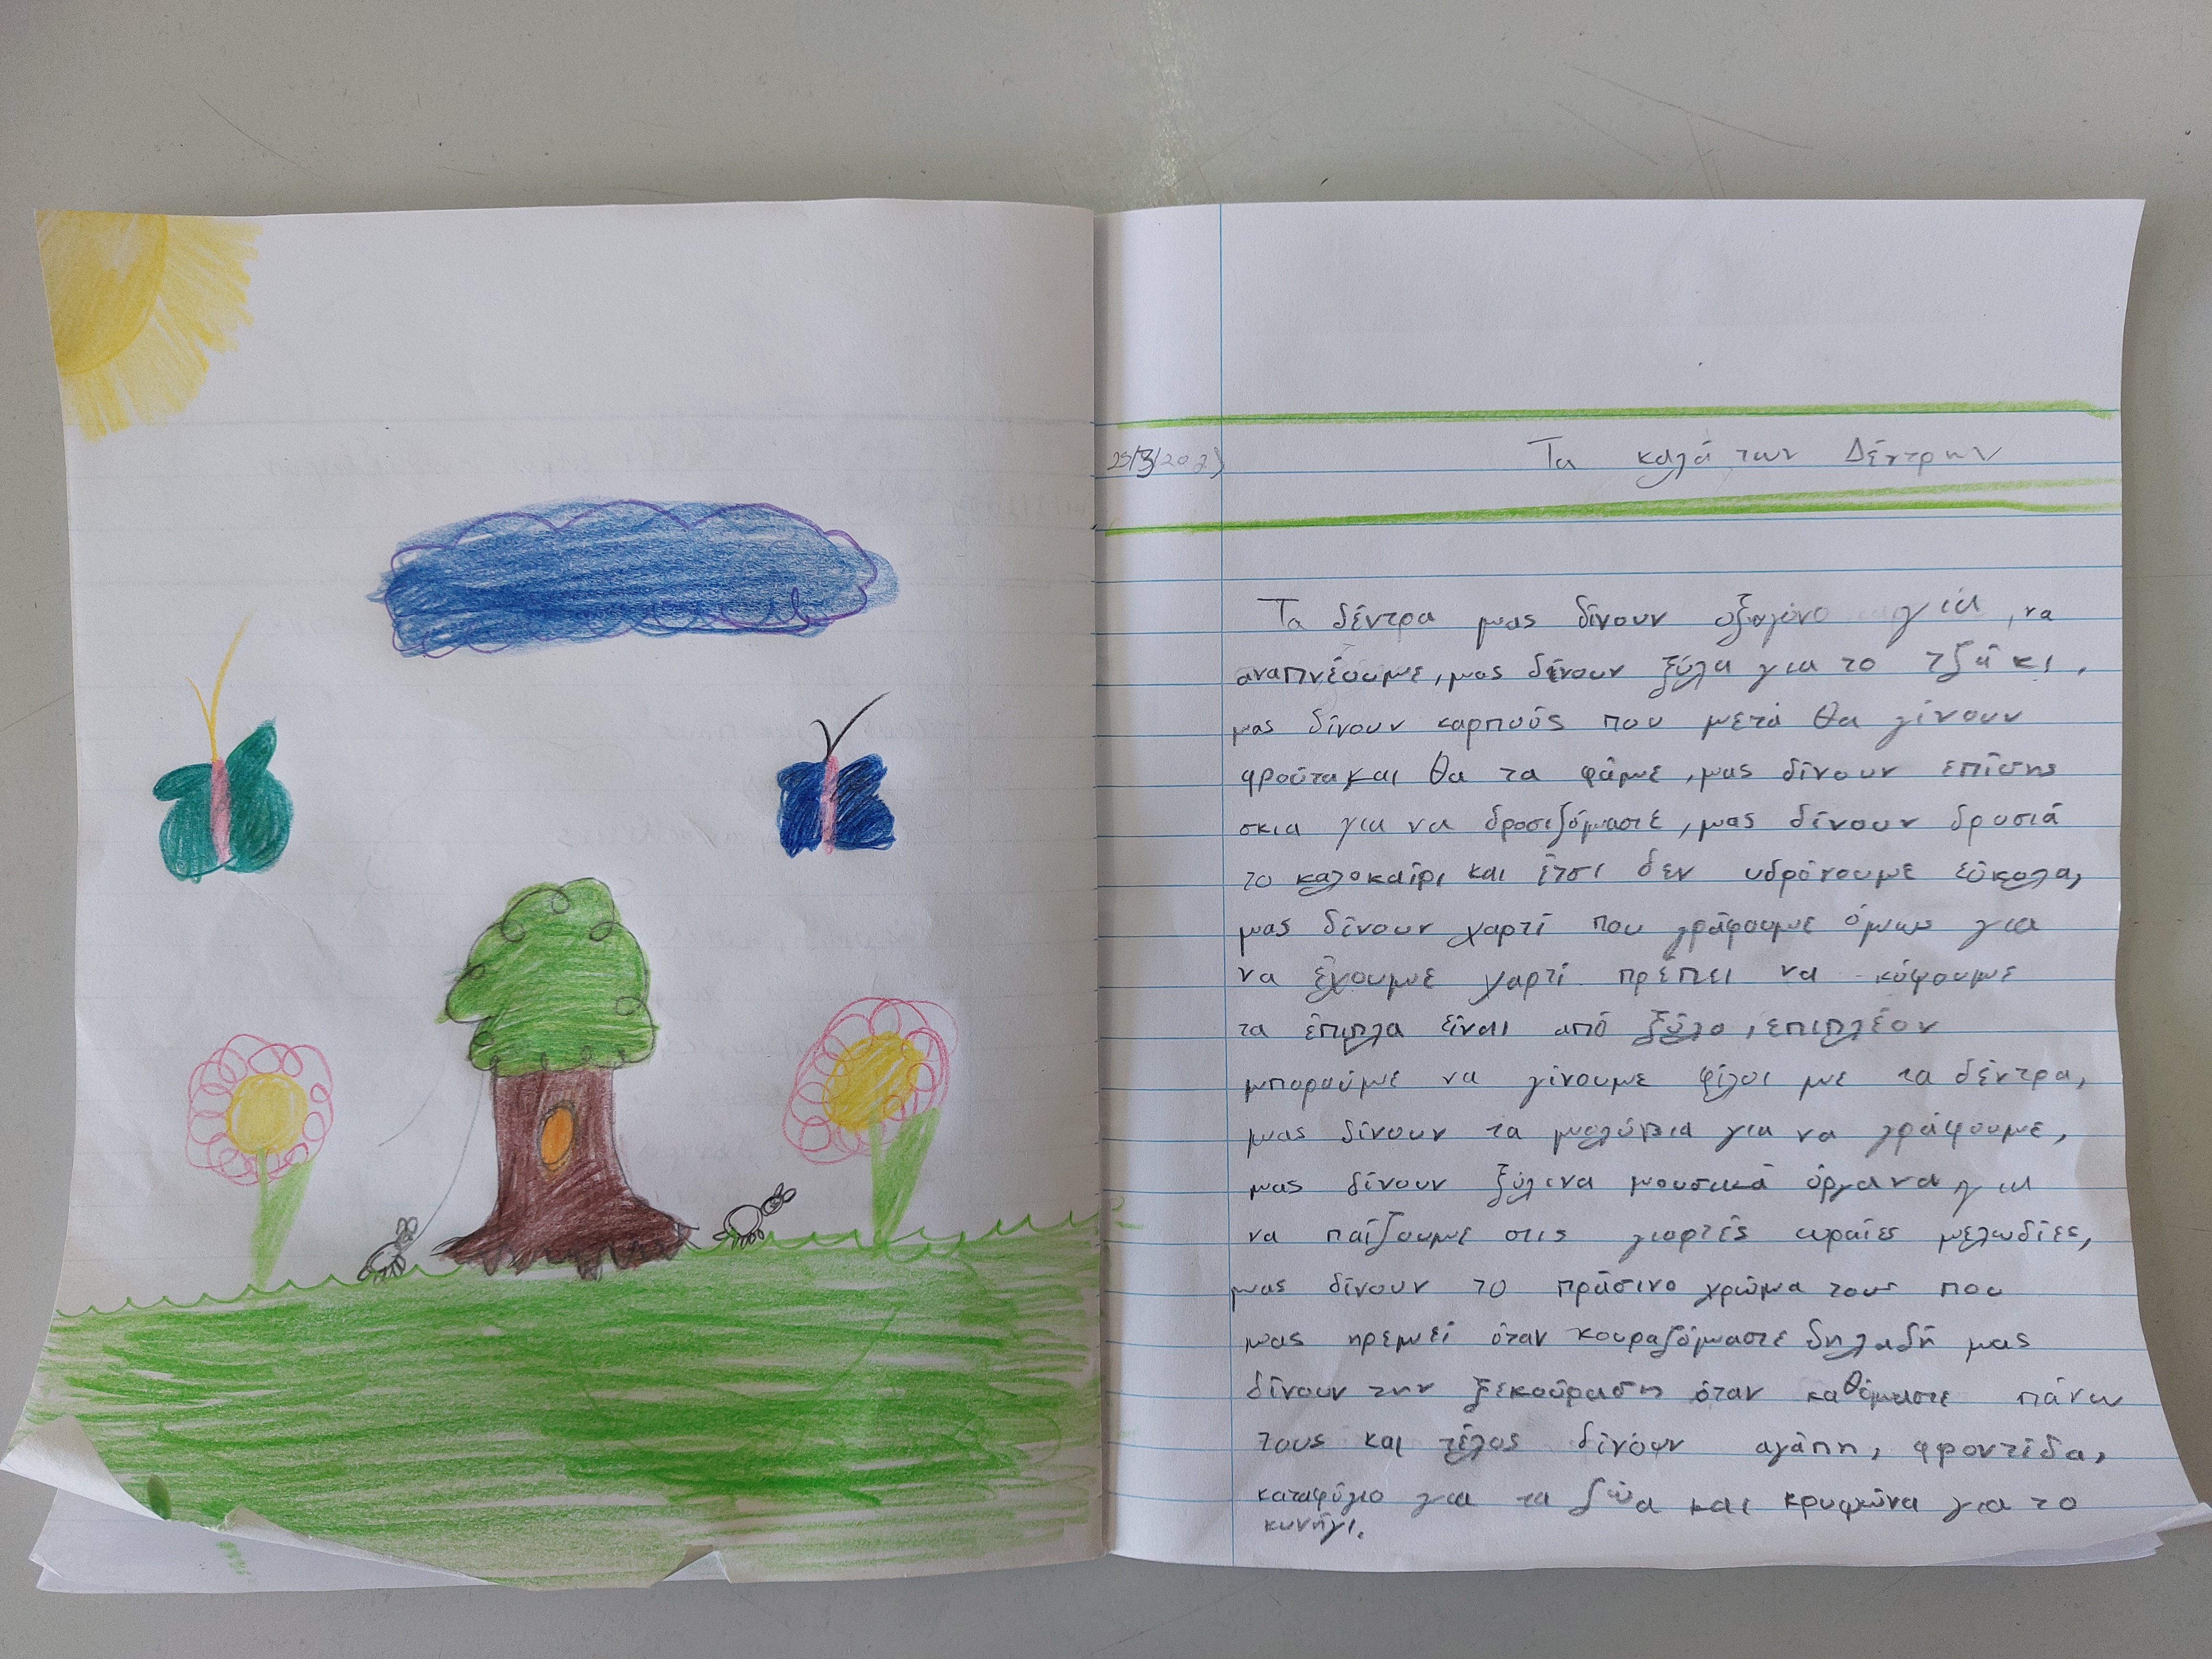 Τα καλά των Δέντρων
Τα δέντρα μας δίνουν οξυγόνο για, να
αναπνέουμε, μας δίνουν ξύλα για το τζάκι,
μας δίνουν καρπούς που μετά θα γίνουν
φρούτα και θα τα φάμε, μας δίνουν επίσης
σκια για να δροσιζόμαστε, μας δίνουν δροσιά
το καλοκαίρι και έτσι δεν υδρόνουμε εύκολα,
μας δίνουν χαρτί που γράφουμε όμως για
να έχουμε χαρτί πρέπει να κόψουμε
τα έπιπλα είναι από ξύλο, επιπλέον
μπορούμε να γίνουμε φίλοι με τα δέντρα,
μας δίνουν τα μολύβια για να γράψουμε,
μας δίνουν ξύλινα μουσικά όργανα για
να παίζουμε στις γιορτές ωραίες μελωδίες,
μας δίνουν το πράσινο χρώμα τους που
μας ηρεμεί όταν κουραζόμαστε δηλαδή μας
δίνουν την ξεκούραση όταν καθόμαστε πάνω
τους και τέλος δίνουν αγάπη, φροντίδα,
καταφύγιο για τα ζώα και κρυφώνα για το
κυνήγι.